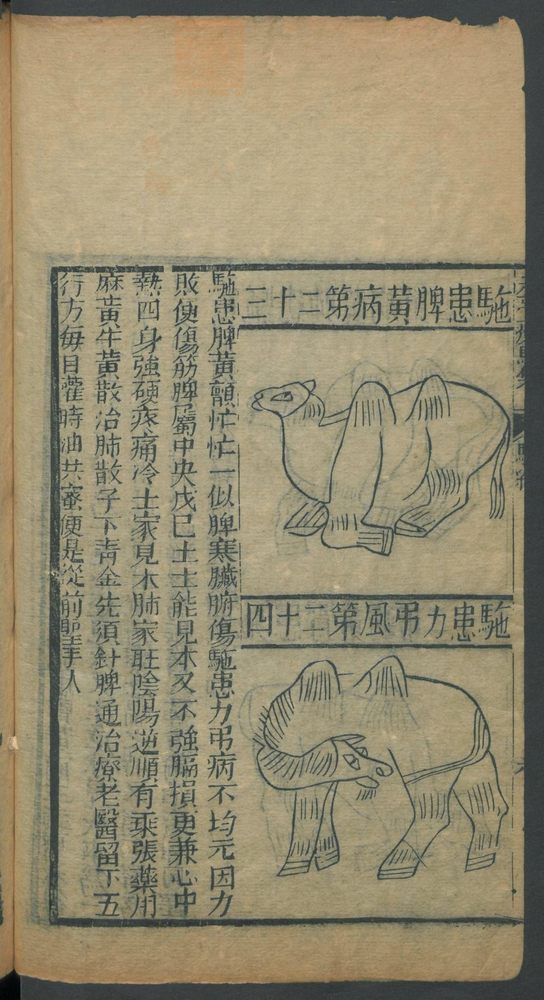 駞患脾黄病第二十三
駞患力弔風第二十四
駞患脾黄顫忙忙一似脾寒臟腑傷駞患力弔病不均元因力
敗使傷筋脾屬中央戊巳土土能見木又不強腦損更兼心中
熱四身強硬疼痛冷土家見木肺家旺陰陽逆順有乘張藥用
麻黄牛黄散治肺散子下青金先須針脾通治療老醫留下五
行方每日灌時油共蜜便是從前聖手人